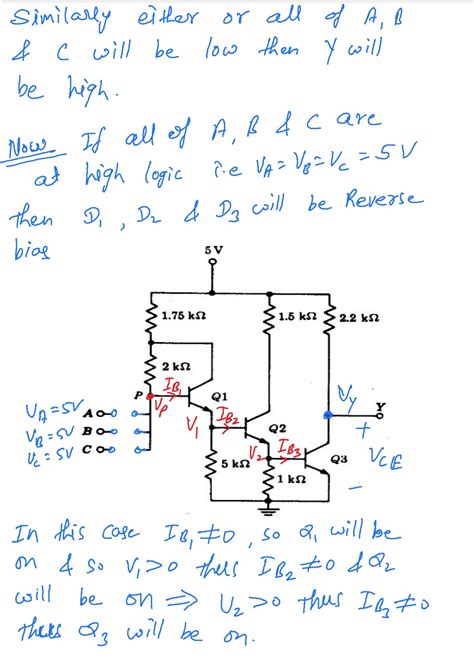 Similarly either or all of A, B
& C will be low then Y will
be high.
Now If all of A, B & C are
at high logic i.e VA = VB = VC = 5V
then D1, D2 & D3 will be Reverse
bias
5 V
1.75 kΩ
1.5 kΩ
2.2 kΩ
2 kΩ
P
Vp
IB1
Q1
VA = 5V A
VB = 5V B
VC = 5V C
V1
IB2
Q2
V2
IB3
Q3
Vy
Y
+
VCE
−
5 kΩ
1 kΩ
In this case IB1 ≠ 0, so Q1 will be
on & so V1 > 0 thus IB2 ≠ 0 & Q2
will be on ⇒ V2 > 0 thus IB3 ≠ 0
thus Q3 will be on.